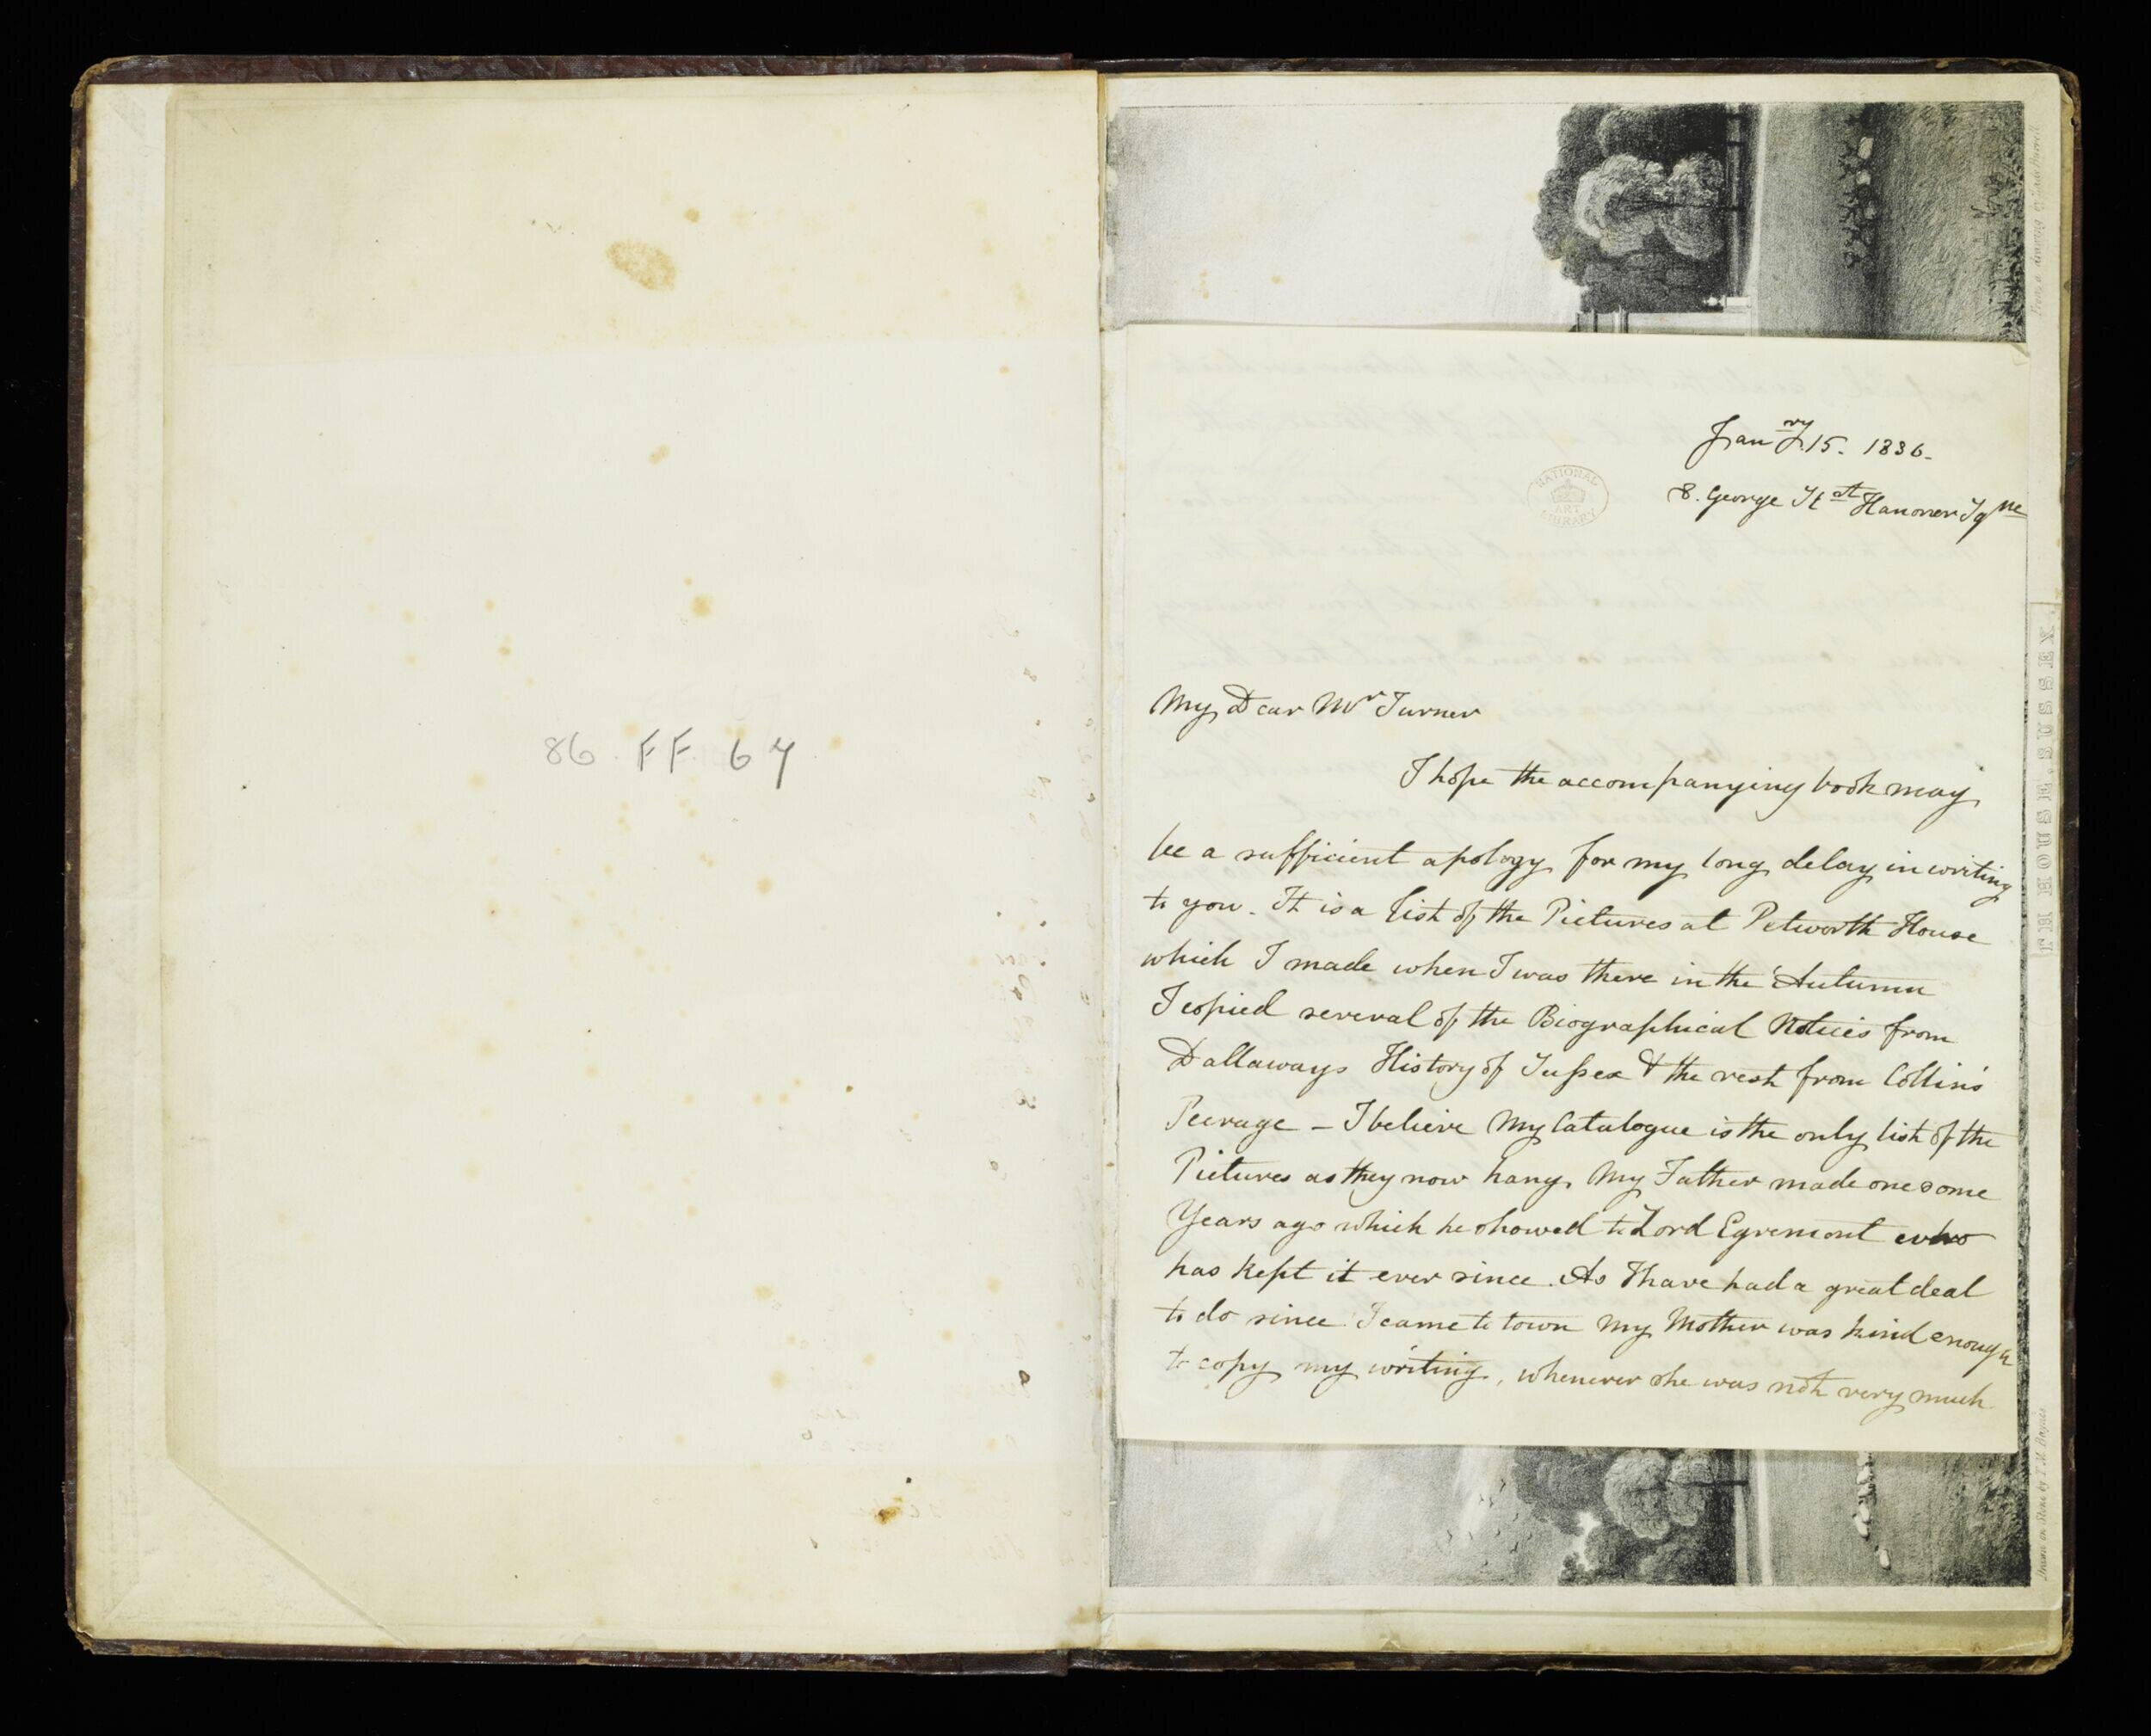 86. FF 64
From a drawing by
Jan.ry 15. 1836.
8. George St st Hanover Sq re
NATIONAL
ART
LIBRARY
My Dear Mr Turner
I hope the accompanying book may
be a sufficient apology for my long delay in writing
to you. It is a List of the Pictures at Petworth House
which I made when I was there in the Autumn
I copied several of the Biographical Notices from
Dallaways History of Sussex & the rest from Collin's
Peerage – I believe My Catalogue is the only list of the
Pictures as they now hang. My Father made one some
Years ago which he showed to Lord Egremont who
has kept it ever since. As I have had a great deal
to do since I came to town My Mother was kind enough
to copy my writing, whenever she was not very much
HOUSE, SUSSEX.
Drawn on Stone by T. M. Baynes